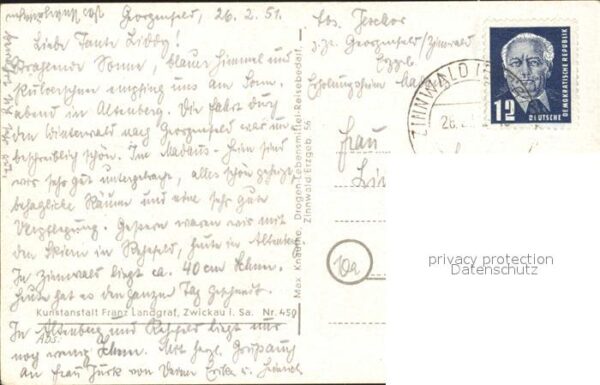 Georgenfeld, 26. 2. 51.
Liebe Tante Liddy!
Strahlende Sonne, blauer Himmel und
Pulverschnee empfing uns am Sonn-
abend in Altenberg. Die Fahrt durch
den Winterwald nach Georgenfeld war un-
beschreiblich schön. Im Madaus-Heim sind
wir sehr gut untergebracht, alles schön geheizt,
behagliche Räume und eine sehr gute
Verpflegung. Gestern waren wir mit
den Skiern in Rehefeld, heute in Altenberg.
In Zinnwald liegt ca. 40 cm Schnee.
Heute hat es den ganzen Tag geschneit.
Kunstanstalt Franz Landgraf, Zwickau i. Sa. Nr. 450
In Altenberg und Rehefeld liegt nur
noch wenig Schnee. Mit herzl. Grüßen auch
an Frau Jurk von Deiner Erika u. Heinrich
Max Knauthe, Drogen-Lebensmittel-Reisebedarf,
Zinnwald-Erzgeb. 56
Abs.
z.Zt. Georgenfeld/Zinnwald
Erzgb.
Erholungsheim
Frau
10a
ZINNWALD
26.2.
12
DEUTSCHE
DEMOKRATISCHE REPUBLIK
privacy protection
Datenschutz